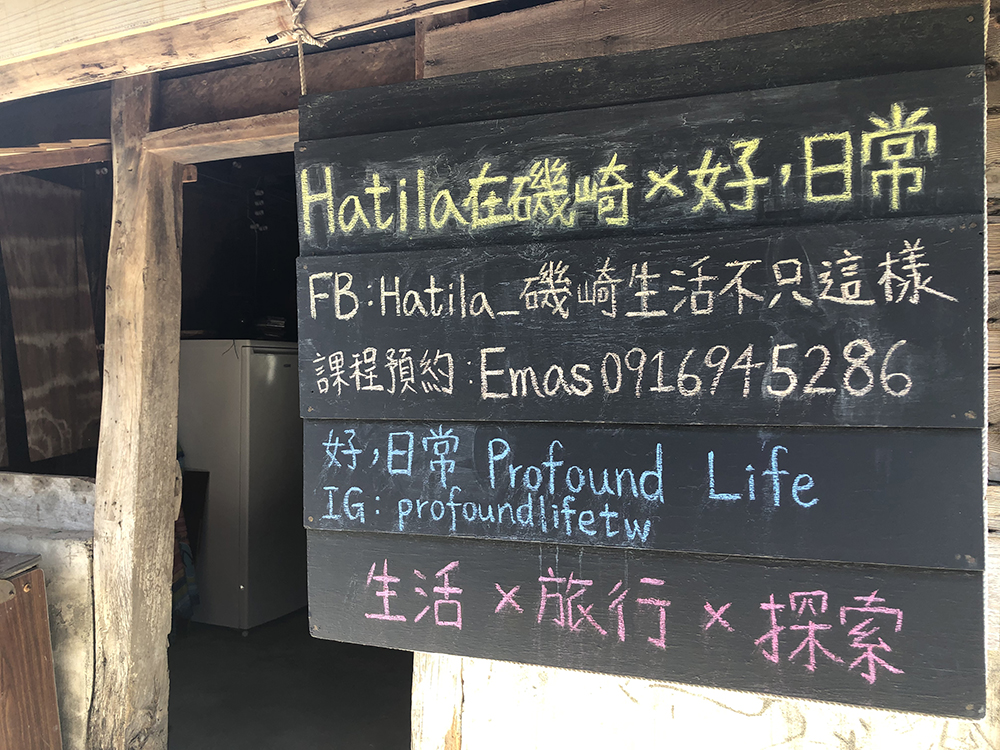 Hatila在磯崎×好,日常
FB:Hatila_磯崎生活不只這樣
課程預約:Emas0916945286
好,日常 Profound Life
IG: profoundlifetw
生活×旅行×探索